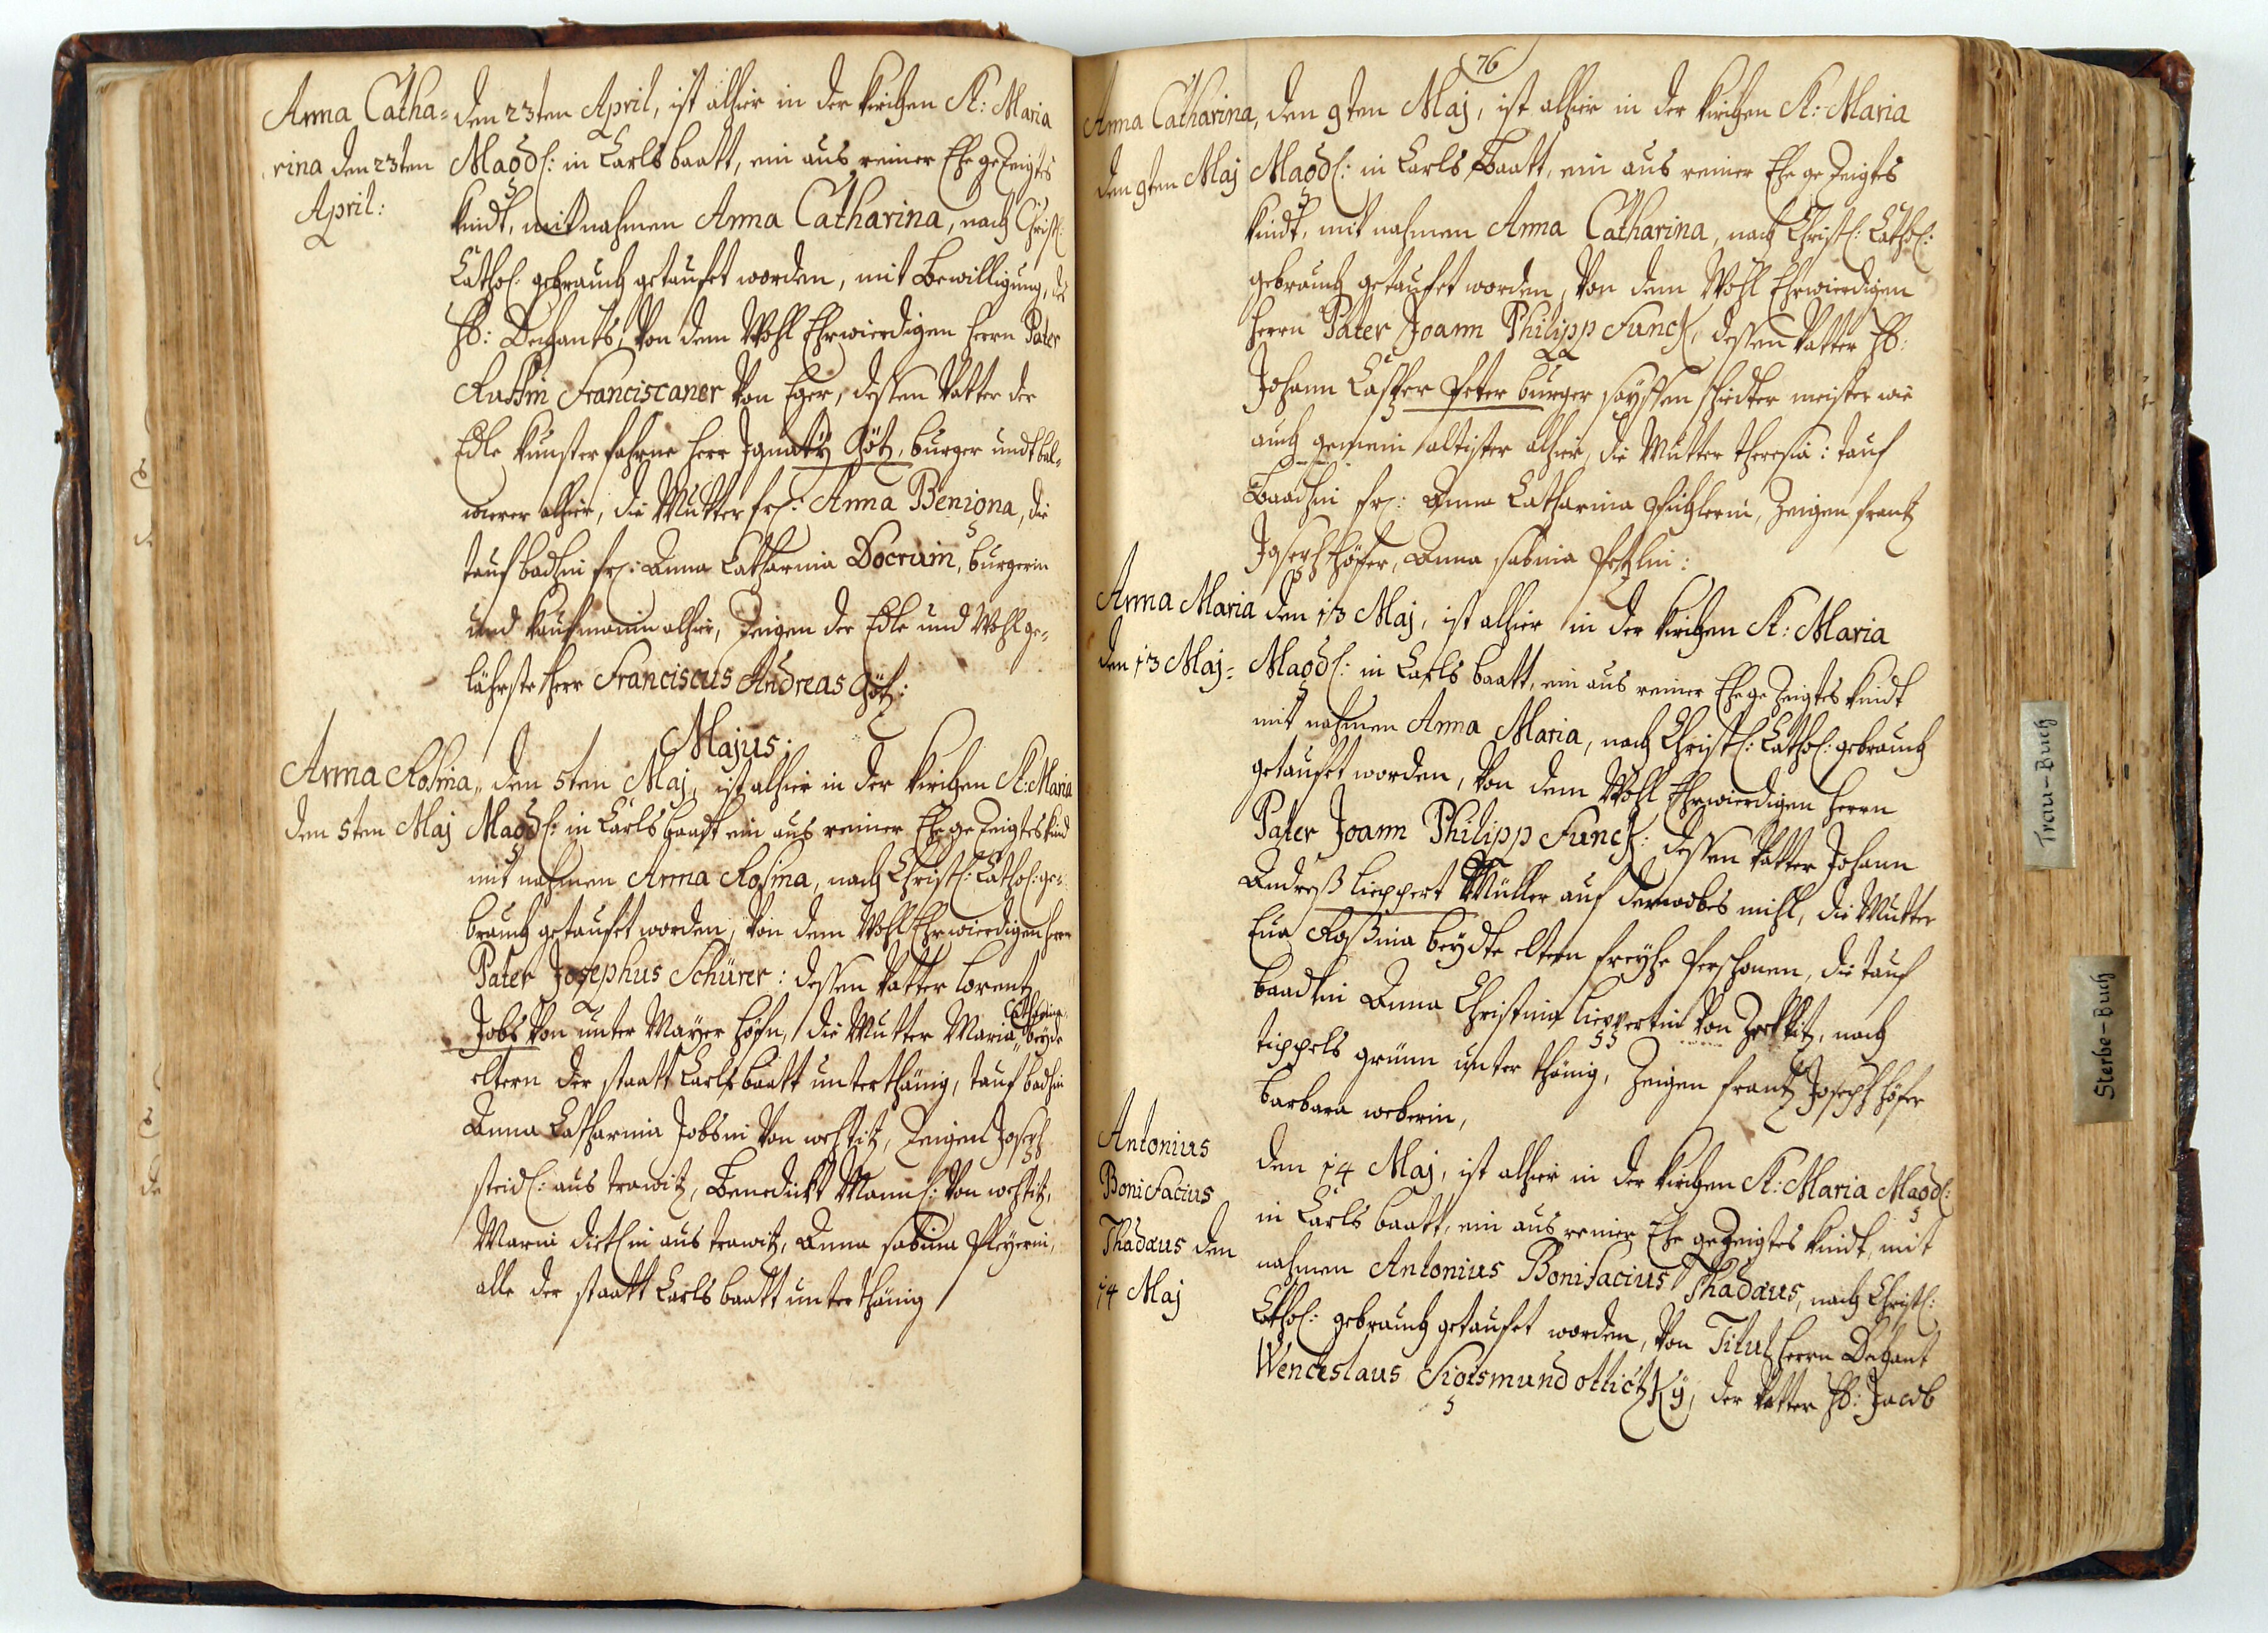 Anna Catha=
rina den 23ten
April:
den 23ten April, ist alhier in der Kirchen St: Maria
Magdl: in Carlsbaatt, ein aus reiner Ehe gezeigtes
Kindt, mit nahmen Anna Catharina, nach Christl:
Cathol: gebrauch getauft worden, mit Bewilligung, des
H: Dechants, Von dem Wohl Ehrwierdigen Herrn Pater
Ruffin Franciscaner Von Eger, dessen Vatter der
Edle Kunsterfahrne Herr Ignatÿ Götz, burger undt bal=
wierer alhier, die Mutter fr: Anna Benigna, die
tauf badhin fr: Anna Catharina Docrum, burgerin
und Kaufmanin alhier, Zeigen der Edle und Wohl ge=
lährste Herr Franciscus Andreas Götz:
Majus:
Anna Rosina,
den 5ten Maj
den 5ten Maj, ist alhier in der Kirchen St: Maria
Magdl: in Carlsbaadt ein aus reiner Ehe gezeigtes Kind
mit nahmen Anna Rosina, nach Christl: Cathol: ge=
brauch getauft worden, Von dem Wohl Ehrwierdigen Herrn
Pater Josephus Schürer: dessen Vatter Lorentz
Catharina
Jobs Von unter Mayer höfen, die Mutter Maria beyde
eltern der staatt Carlsbaatt unterthänig, tauf badhin
Anna Catharina Jobsin Von wehditz, Zeigen Joseph
steidl: aus trawitz, Benedickt Mannl: Von wehditz,
Maria dietlin aus trawitz, Anna sabina Pleyerin,
alle der staatt Carlsbaatt unterthänig
76
Anna Catharina,
den 9ten Maj
den 9ten Maj, ist alhier in der Kirchen St: Maria
Magdl: in Carls Baatt, ein aus reiner Ehe gezeigtes
Kindt, mit nahmen Anna Catharina, nach Christl: Cathol:
gebrauch getaufet worden, Von dem Wohl Ehrwierdigen
Herrn Pater Joann Philipp Funck, dessen Vatter H:
Johann Casper Peter burger meister wie
auch gemein altister alhier, die Mutter theresia: tauf
Baadhin fr: Anna Catharina Zeigen frantz
Joseph höfer, Anna sabina
Anna Maria
den 13 Maj=
den 13 Maj, ist alhier in der Kirchen St: Maria
Magdl: in Carls baatt, ein aus reiner Ehe gezeigtes Kindt
mit nahmen Anna Maria, nach Christl: Cathol: gebrauch
getaufet worden, Von dem Wohl Ehrwierdigen Herrn
Pater Joann Philipp Funck: dessen Vatter Johann
Andreß lieppert Müller auf der wobes mihl, die Mutter
Eua Roßina beydte eltern freyhe Perschonen, die tauf
baadhin Anna Christina lieppertin Von Zettlitz, nach
tippels grünn unter thänig, Zeigen frantz Joseph höfer
barbara weberin,
Antonius
Bonifacius
Thadæus den
14 Maj
den 14 Maj, ist alhier in der Kirchen St: Maria Magdl:
in Carls baatt, ein aus reiner Ehe gezeigtes Kindt, mit
nahmen Antonius Bonifacius Thadæus, nach Christl:
Cathol: gebrauch getaufet worden, Von Titul Herrn Dechant
Wenceslaus Sigismund ollictzkÿ, der Vatter H: Jacob
Trau-Buch
Sterbe-Buch